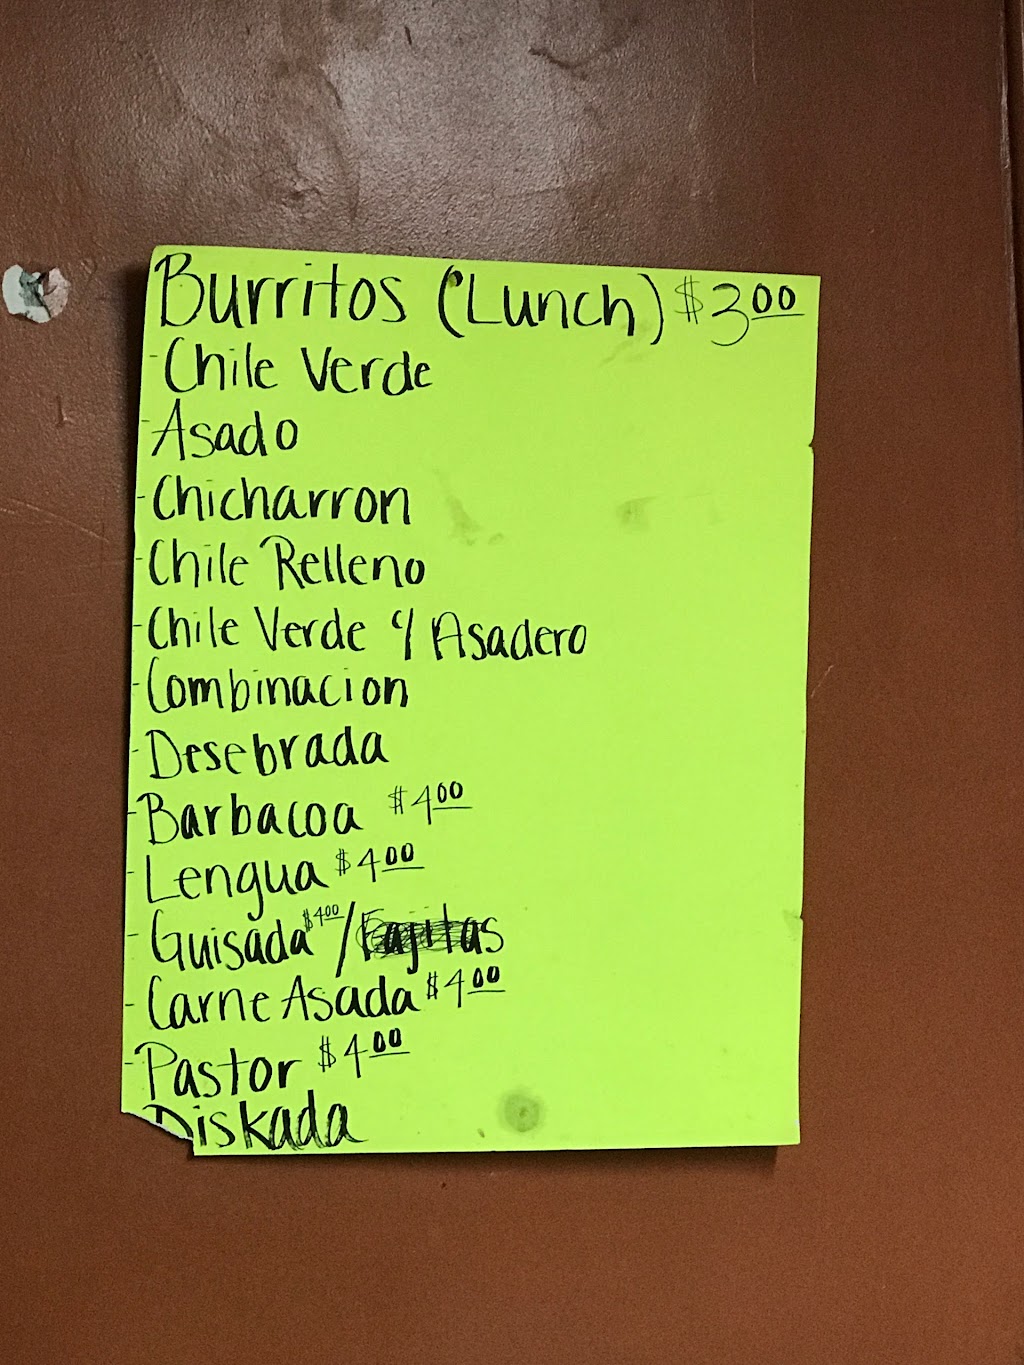 Burritos (Lunch) $3.00
- Chile Verde
- Asado
- Chicharron
- Chile Relleno
- Chile Verde y Asadero
- Combinacion
- Desebrada
- Barbacoa $4.00
- Lengua $4.00
- Guisada $4.00 / Fajitas
- Carne Asada $4.00
- Pastor $4.00
Diskada